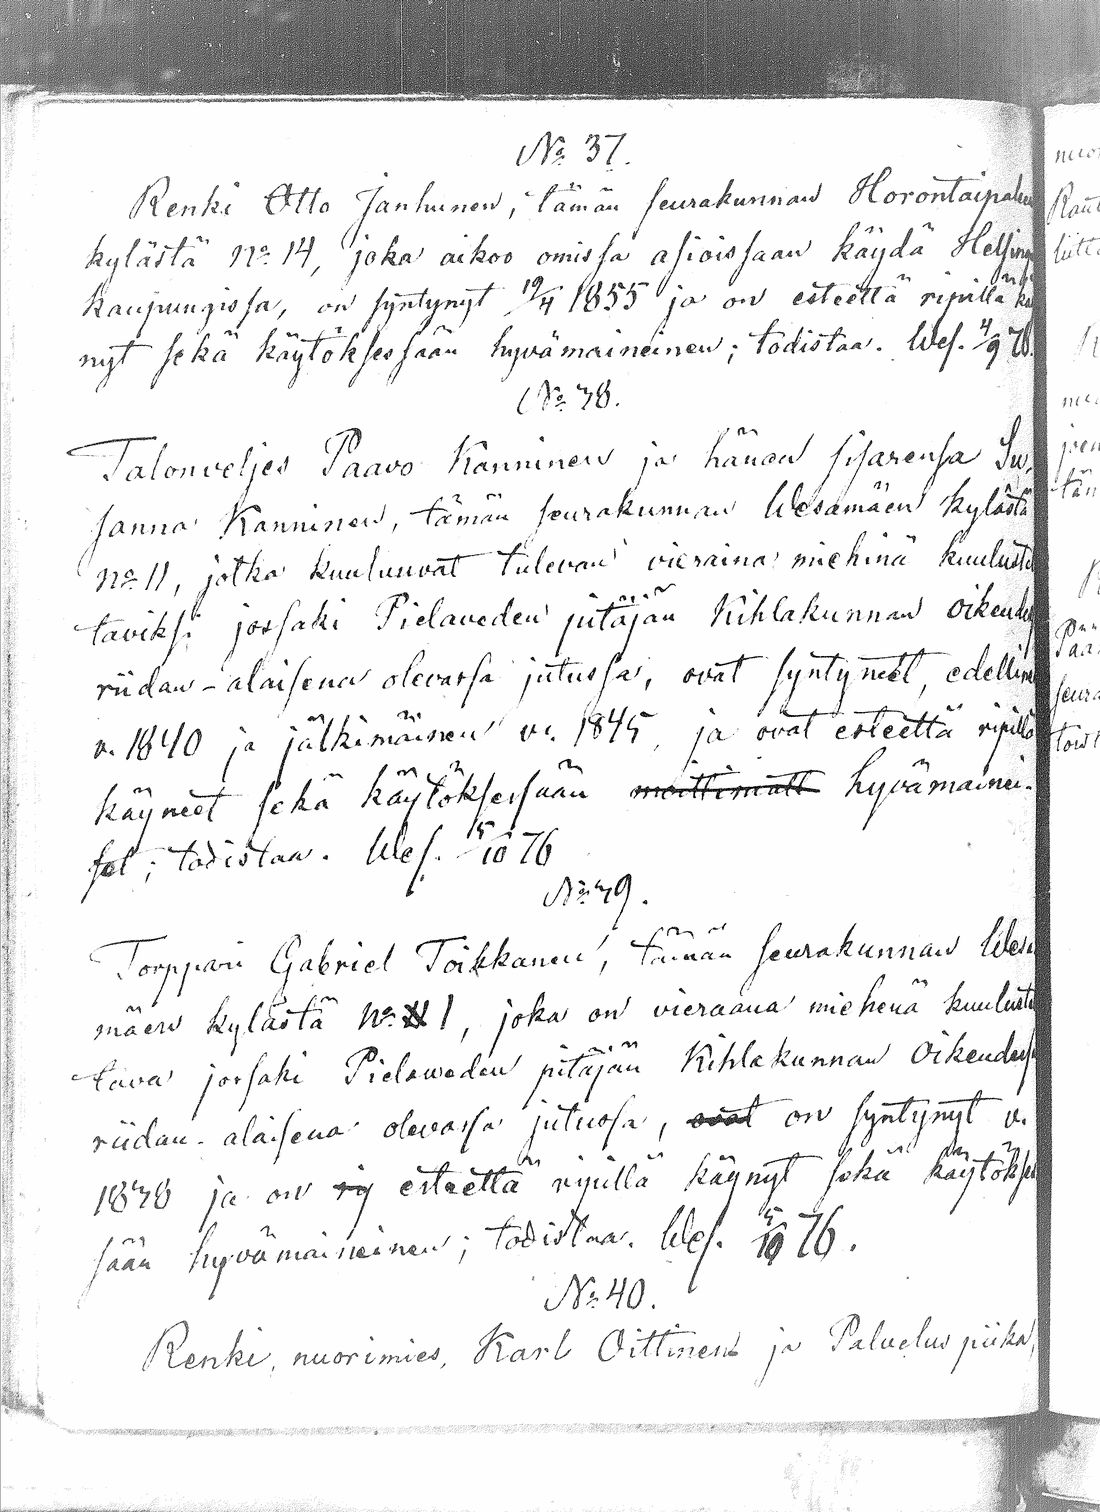 No 37.
Renki Otto Janhunen, tämän seurakunnan Horontaipaleen
kylästä no 14, joka aikoo omissa asioissaan käydä Helsing
kaupungissa, on syntynyt 19/4 1855 ja on esteettä ripillä kä
nyt sekä käytöksessään hyvämaineinen; todistaa. Wes. 4/9 76.
No 38.
Talonveljes Paavo Kanninen ja hänen sisarensa Su,
sanna Kanninen, tämän seurakunnan Wesamäen kylästä
no 11, jotka kuuluuvat tulevan vieraina miehinä kuuluste
taviksi jossaki Pielaveden pitäjän Kihlakunnan oikeudes
riidan-alaisena olevassa jutussa, ovat syntyneet, edelline
v. 1840 ja jälkimäinen v. 1845, ja ovat esteettä ripillä
käyneet sekä käytöksessään moittimatt hyvämainei-
set; todistaa. Wes. 5/10 76
No 39.
Torppari Gabriel Toikkanen, tämän seurakunnan Wesa
mäen kylästä no 11 1, joka on vieraana miehenä kuuluste
tava jossaki Pielaweden pitäjän Kihlakunnan Oikeudess
riidan-alaisena olevassa jutussa, ovat on syntynyt v.
1838 ja on rij esteettä ripillä käynyt sekä käytökses
sään hyvämaineinen; todistaa. Wes. 5/10 76.
No 40.
Renki, nuorimies, Karl Oittinen ja Palvelus piika,